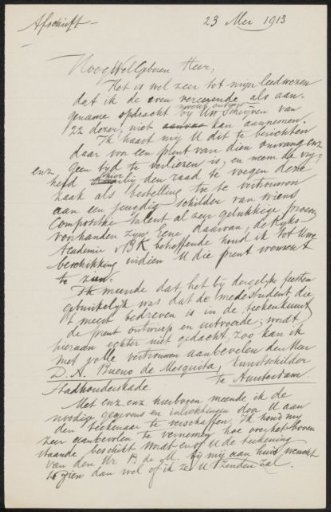 Afschrift
23 Mei 1913
HoogWelGeboren Heer,
Het is wel zeer tot mijn leedwezen
dat ik de even vereerende als aan-
gename opdracht bij Uw schrijven van
22 dezer, niet kan aannemen.
Ik haast mij U dit te berichten
daar voor een prent van dien omvang enz
enz. geen tijd te verliezen is, en neem de vrij-
heid den raad te voegen deze
zaak als bestelling toe te vertrouwen
aan een jeugdig schilder van wiens
Compositie talent al zeer gelukkige proeven
voorhanden zijn, daarvan, de Rijks
Academie v BK behoffende houd ik tot Uwe
beschikking indien U die prent wenscht
te zien.
Ik meende dat het bij dergelijke feesten
gebruikelijk was dat de mede Student die
't meest bedreven is in de teekenkunst
de prent ontwierp en uitvoerde; wordt
hieraan echter niet gedacht, zoo kan ik
met volle vertrouwen aanbevelen den Heer
D. A. Bueno de Mesquita, kunstschilder
Stadhouderskade te Amsterdam
Met enz enz meende ik de
noodige gegevens en inlichtingen door U aan
den teekenaar te verschaffen. Ik houd mij
zeer aanbevolen te vernemen hoe over het boven
staande beschikt wordt en of U de teekening
van den Hr B. de M. bij mij aan huis wenscht
te zien dan wel of ik ze U zenden zal.